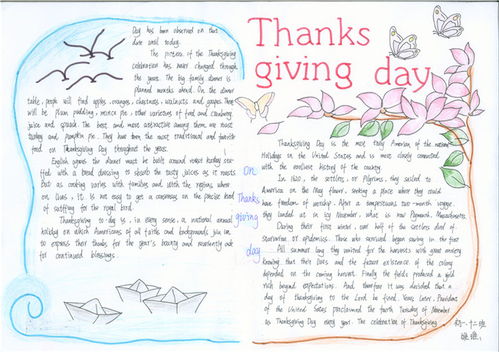 Thanks
giving day
Day has been observed on this
date until today.
The pattern of the Thanksgiving
celebration has never changed through
the years. The big family dinner is
planned months ahead. On the dinner
table, people will find apples, oranges, chestnuts, walnuts and grapes. There
will be plum pudding, mince pie, other varieties of food and cranberry
juice and squash. The best and most attractive among them are roast
turkey and pumpkin pie. They have been the most traditional and favorite
food on Thanksgiving Day throughout the years.
agrees the dinner must be built around roast turkey
fed with a bread dressing to absorb the tasty juices as it roasts
But as cooking varies with families and with the regions where
on lives, it is not easy to get a consensus on the precise kind
of stuffing for the royal bird.
Thanksgiving today is, in every sense, a national annual
holiday on which Americans of all faiths and backgrounds join in
to express their thanks for the year's bounty and reverently ask
for continued blessings.
On
Thanks
giving
day
Thanksgiving Day is the most truly American of the national
Holidays in the United States and is most closely connected
with the earliest history of the country.
In 1620, the settlers, or Pilgrims, they sailed to
America on the May flower, seeking a place where they could
have freedom of worship. After a tempestuous two-month voyage
they landed at in icy November, what is now Plymouth, Massachusetts.
During their first winter, over half of the settlers died of
starvation or epidemics. Those who survived began sowing in the first
All summer long they waited for the harvests with great anxiety
knowing that their lives and the future existence of the colony
depended on the coming harvest. Finally the fields produced a yield
rich beyond expectations. And therefore it was decided that a
day of thanksgiving to the Lord be fixed. Years later, President
of the United States proclaimed the fourth Thursday of November
as Thanksgiving Day every year. The celebration of Thanksgiving
初一.十二班